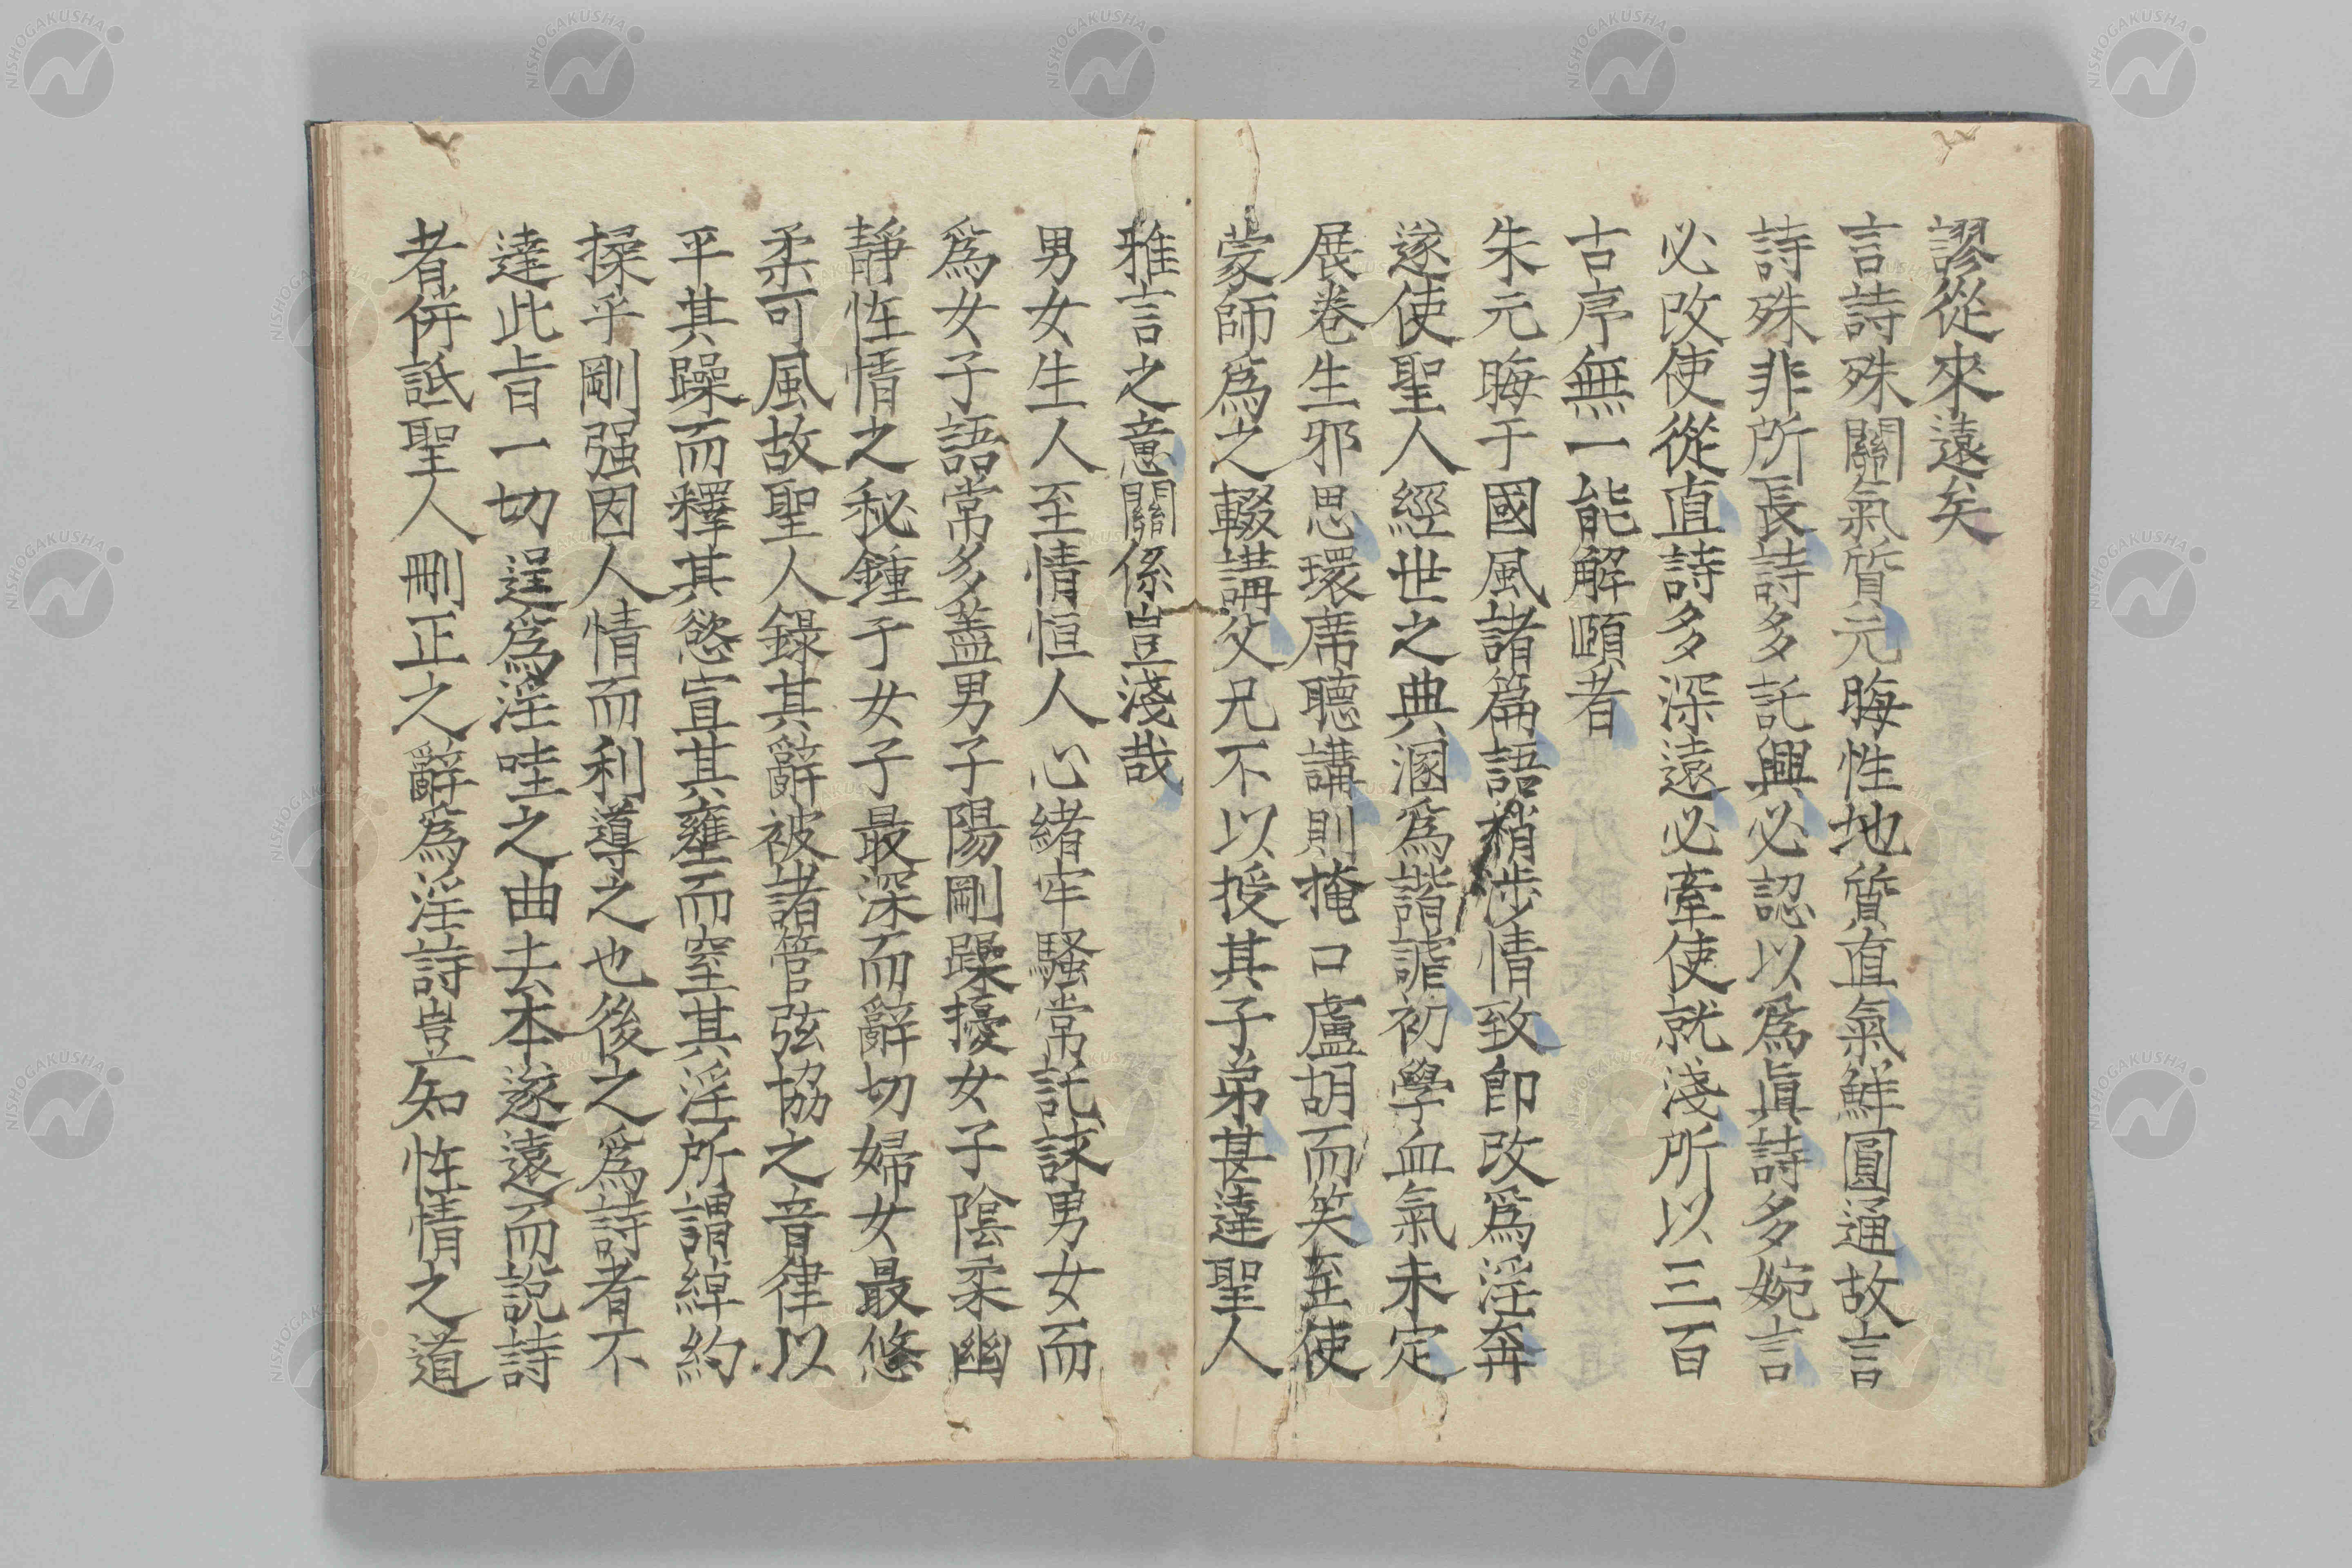 謬從來遠矣
言詩殊關氣質元晦性地質直氣鮮圓通故言
詩殊非所長詩多託興必認以爲眞詩多婉言
必改使從直詩多深遠必牽使就淺所以三百
古序無一能解頤者
朱元晦于國風諸篇語稍涉情致卽改爲淫奔
遂使聖人經世之典溷爲諧謔初學血氣未定
展卷生邪思環席聽講則掩口盧胡而笑至使
蒙師爲之輟講父兄不以授其子弟甚違聖人
雅言之意關係豈淺哉
男女生人至情恒人心緒牢騷常託詠男女而
爲女子語常多蓋男子陽剛躁擾女子陰柔幽
靜性情之秘鍾于女子最深而辭切婦女最悠
柔可風故聖人錄其辭被諸管弦協之音律以
平其躁而釋其慾宣其壅而窒其淫所謂綽約
操乎剛强因人情而利導之也後之爲詩者不
達此旨一切逞爲淫哇之曲去本遂遠而說詩
者併詆聖人刪正之辭爲淫詩豈知性情之道
NISHOGAKUSHA
NISHOGAKUSHA
NISHOGAKUSHA
NISHOGAKUSHA
NISHOGAKUSHA
NISHOGAKUSHA
NISHOGAKUSHA
NISHOGAKUSHA
NISHOGAKUSHA